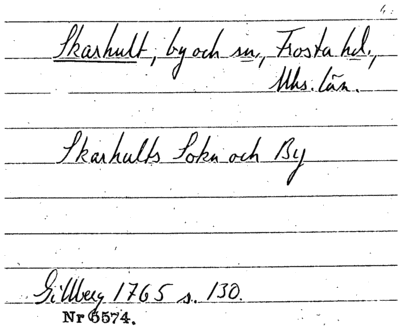 Skarhult, by och sn., Frosta hd.,
Mhs. län.
Skarhults Sokn och By
Gillberg 1765 s. 130.
Nr 6574.